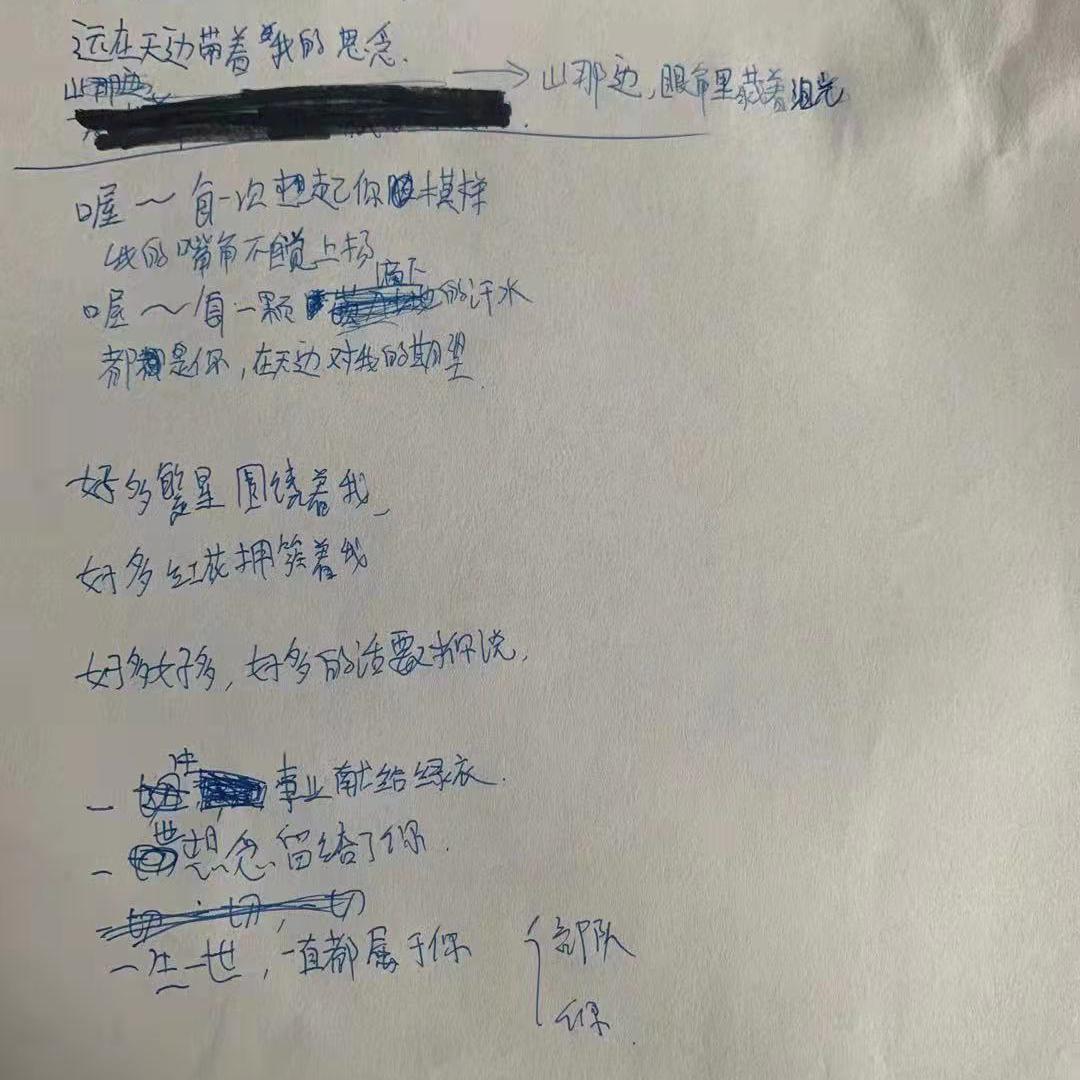 远在天边带着我的思念.
山那边
→ 山那边,眼角里藏着泪光
喔~每一次想起你的模样
我的嘴角不自觉上扬
喔~每一颗滴下的汗水
都是你,在天边对我的期望.
好多繁星围绕着我,
好多红花拥簇着我
好多好多,好多的话要对你说,
一生事业献给绿衣.
一世想念留给了你.
切,一切,一切
一生一世,一直都属于你
{部队
你.